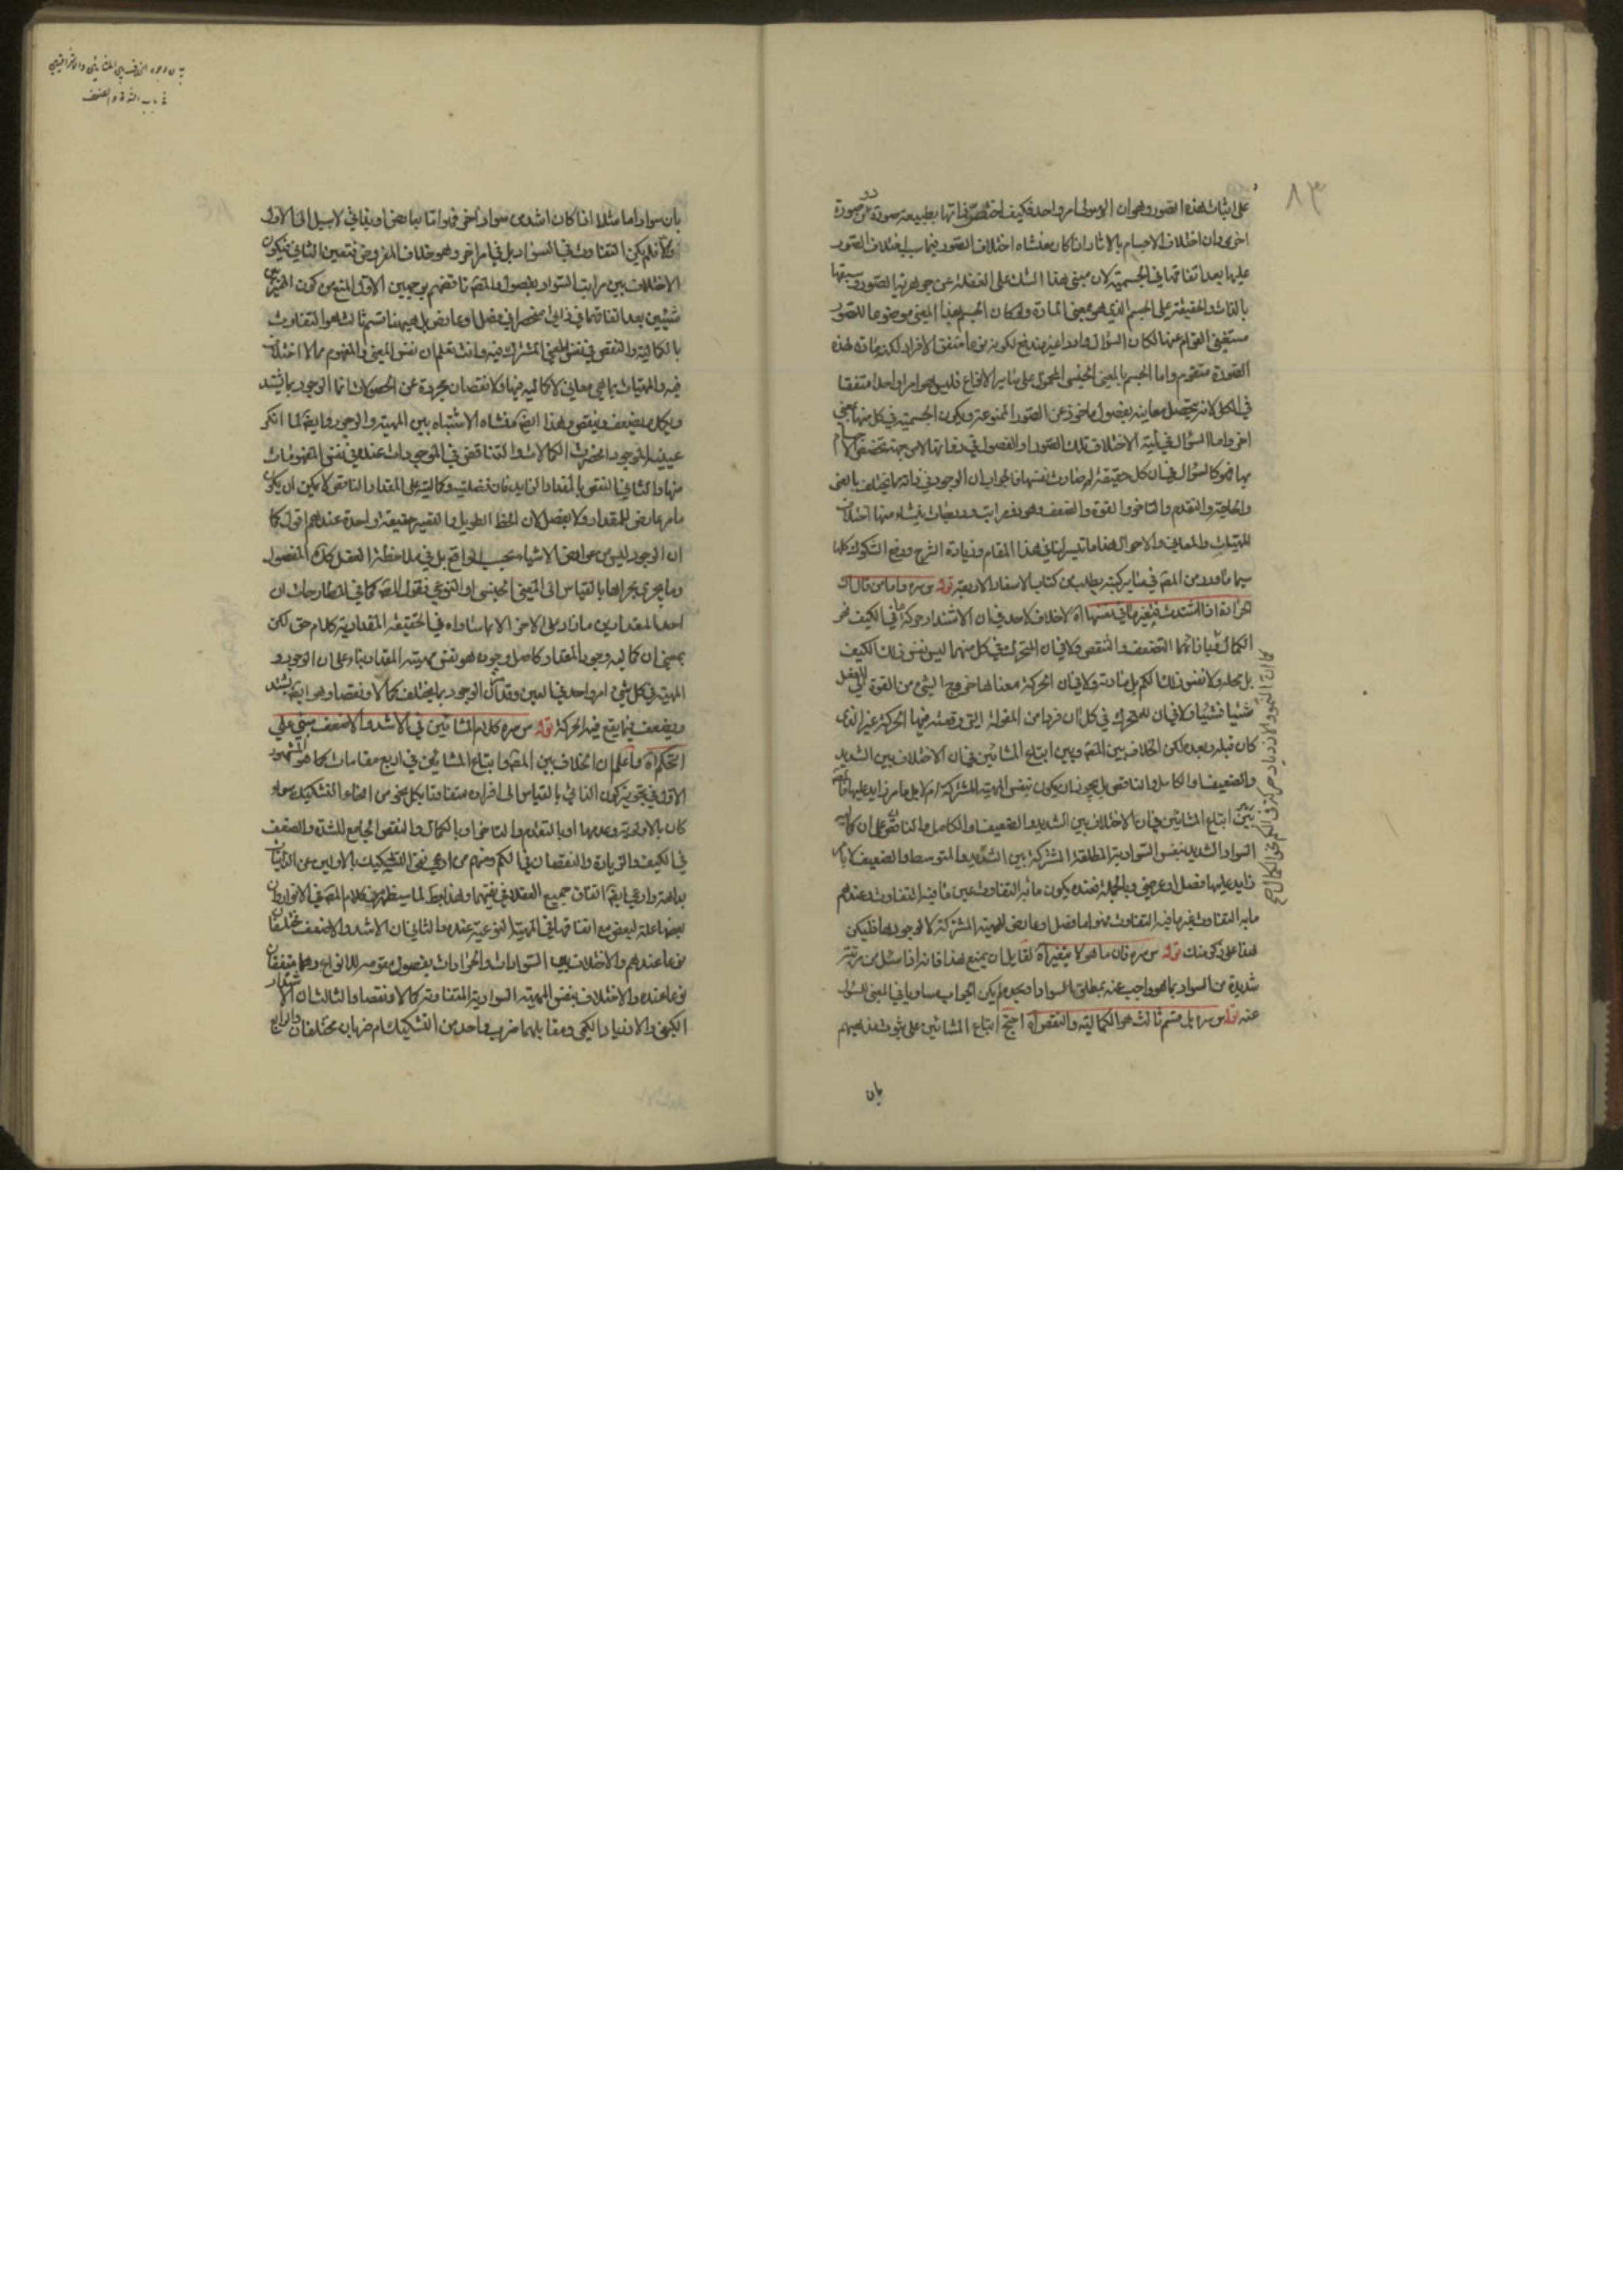 ٨٣
على اثبات هذه الصور وهو ان الهيولى امر واحد فكيف اختص في ذاتها بطبيعته صورة دون صورة
اخرى وان اختلاف الاجسام بالاثار اذا كان منشاه اختلاف الصور فما سبب اختلاف الصور
عليها بعد اتفاقها في الجسمية لان مبنى هذا الشك على الغفلة عن جوهرية الصور وسبقها
بالذات والحقيقة على الجسم الذي هو بمعنى المادة ولو كان الجسم بهذا المعنى موضوعا للصور
مستغنى القوام عنها لكان السؤال واردا غير مندفع لكونه نوعا متفق الافراد لكنه مادة لهذه
الصورة متقوم واما الجسم بالمعنى الجنسي المحمول على ساير الانواع فليس هو امرا واحدا متفقا
في الكل لانه يتحصل معاينه بفصول ماخوذ عن الصور المنوعة ويكون الجسمية في كل منها بمعنى
اخر واما السؤال في لمية الاختلاف تلك الصور او الفصول في ذواتها لا من جهة تخصص الاجسام
بها فهو كالسؤال في ان كل حقيقة لم صارت نفسها فالجواب ان الوجود في ذاته مما يختلف بالغنى
والحاجة والتقدم والتاخر والقوة والضعف وهو ذو مراتب ودرجات ينشاء منها اختلاف
المهيات والمعاني والاحوال هذا ما تيسر لنا في هذا المقام وزيادة الشرح ودفع الشكوك كلها
سيما ما اورد من المص في ساير كتبه يطلب من كتاب الاسفار الاربعة قوله س سره واما من قال ان
الحرارة اذا اشتدت فتغيرها في نفسها اه لا خلاف لاحد في ان الاشتداد حركة ما في الكيف نحو
الكمال يقابلهما التضعف والتنقص ولا في ان المتحرك في كل منهما ليس نفس ذلك الكيف
بل محله ولا نفس ذلك الكم بل مادته ولا في ان الحركة معناها خروج الشئ من القوة الى الفعل
شيئا فشيئا ولا في ان للمتحرك في كل ان فردا من المقولة التي وقعت فيها الحركة غير الذي
كان قبله وبعده لكن الخلاف بين المص وبين اتباع المشائين في ان الاختلاف بين الشديد
والضعيف والكامل والناقص هل يجوز ان يكون بنفس المهية المشتركة ام لا بل بامر زايد عليها
بين اتباع المشائين في ان الاختلاف بين الشديد والضعيف والكامل والناقص على ان كمالية
السواد الشديد بنفس السوادية المطلقة المشتركة بين الشديد والمتوسط والضعيف لا بامر
زايد عليها فصل او عرضي وبالجملة فعنده يكون ما به التفاوت عين ما فيه التفاوت وعندهم
ما به التفاوت غير ما فيه التفاوت فهو اما فصل او عارض للمهية المشتركة لا لوجودها فليكن
هذا على ذكر منك قوله س سره فان ما هو لا يتغير اه لقايل ان يمنع هذا فانه اذا سئل من مرتبة
شديدة من السواد بما هو واجب عنه بمطلق السواد او بحده لم يكن الجواب مساويا في المعنى المسئول
عنه قوله س سره بل قسم ثالث هو الكمالية والنقص اه احتج اتباع المشائين على ثبوت مذهبهم
بان
كما ان النمو والازدياد حركة في الكم نحو الكمال صح
في باب الشدة والضعف
بان سوادا ما مثلا اذا كان اشد من سواد اخر فهو اما بعارض او بذاتي لا سبيل الى الاول
والا فلم يكن التفاوت في السواد بل في امر اخر وهو خلاف المفروض فتعين الثاني فيكون
الاختلاف بين مراتب السواد بفصول والمص ناقضهم بوجهين الاول المنع من كون المميز بين
شيئين بعد اتفاقهما في ذاتي منحصرا في فصل او عارض بل هيهنا قسم ثالث هو التفاوت
بالكمالية والنقص في نفس المعنى المشترك فيه وانت تعلم ان نفس المعنى والمفهوم مما لا اختلاف
فيه والمهيات بما هي معاني لا كمالية فيها ولا نقصان مجردة عن الحصولات انما الوجود مما يشتد
ويكمل ويضعف وينقص وهذا ايضا منشاه الاشتباه بين المهية والوجود وايضا لما انكر
عينية الوجود انحصرت الكمالات والتناقص في الموجودات عنده في نفس المفهومات
منها والثاني النقض بالمقدار الزايد فان فضليته وكماليته على المقدار الناقص لا يمكن ان يكون
بامر عارض للمقدار ولا بفصل لان الخط الطويل والقصير حقيقة واحدة عندهم اقول كما
ان الوجود ليس من عوارض الاشياء بحسب الواقع بل في ملاحظة العقل كذلك الفصول
وما يجري مجراها بالقياس الى المعنى الجنسي او النوعي فقول المص كما في المطارحات ان
احد المقدارين ما زاد على الاخر الا بما ساواه في الحقيقة المقدارية كلام حق لكن
بمعنى ان كمالية وجود المقدار كاصل وجوده هو نفس مهية المقدار بناء على ان الوجود و
المهية في كل شئ امر واحد في العين وقد مر ان الوجود مما يختلف كمالا ونقصا وهو ايضا يشتد
ويضعف فيما يقع فيه الحركة قوله س سره كلام المشائين في الاشد والاضعف مبني على
التحكم اه واعلم ان الخلاف بين المص واتباع المشائين في اربع مقامات كما هو المشهور
الاول في تجويز كون الذاتي بالقياس الى افراده متفاوتا بكل نحو من انحاء التشكيك سواء
كان بالاولوية وعدمها او بالتقدم والتاخر او بالكمال والنقص الجامع للشدة والضعف
في الكيف والزيادة والنقصان في الكم ومنهم من ادعى نفي التشكيك بالاولين عن الذاتيات
بداهة وادعى ايضا اتفاق جميع العقلاء في نفيهما وهذا غلط لما سيظهر من كلام المص في الانوار وان
بعضها علة لبعض مع اتفاقها في المهية النوعية عنده والثاني ان الاشد والاضعف مختلفان
نوعا عندهم والاختلاف بين السوادات والحرارات بفصول مقومة للانواع وهما متفقان
نوعا عنده والاختلاف بنفس المهية السوادية المتفاوتة كمالا ونقصا والثالث ان الاشتداد
الكيفي والازدياد الكمي ومقابلهما ضرب واحد من التشكيك ام ضربان مختلفان والرابع